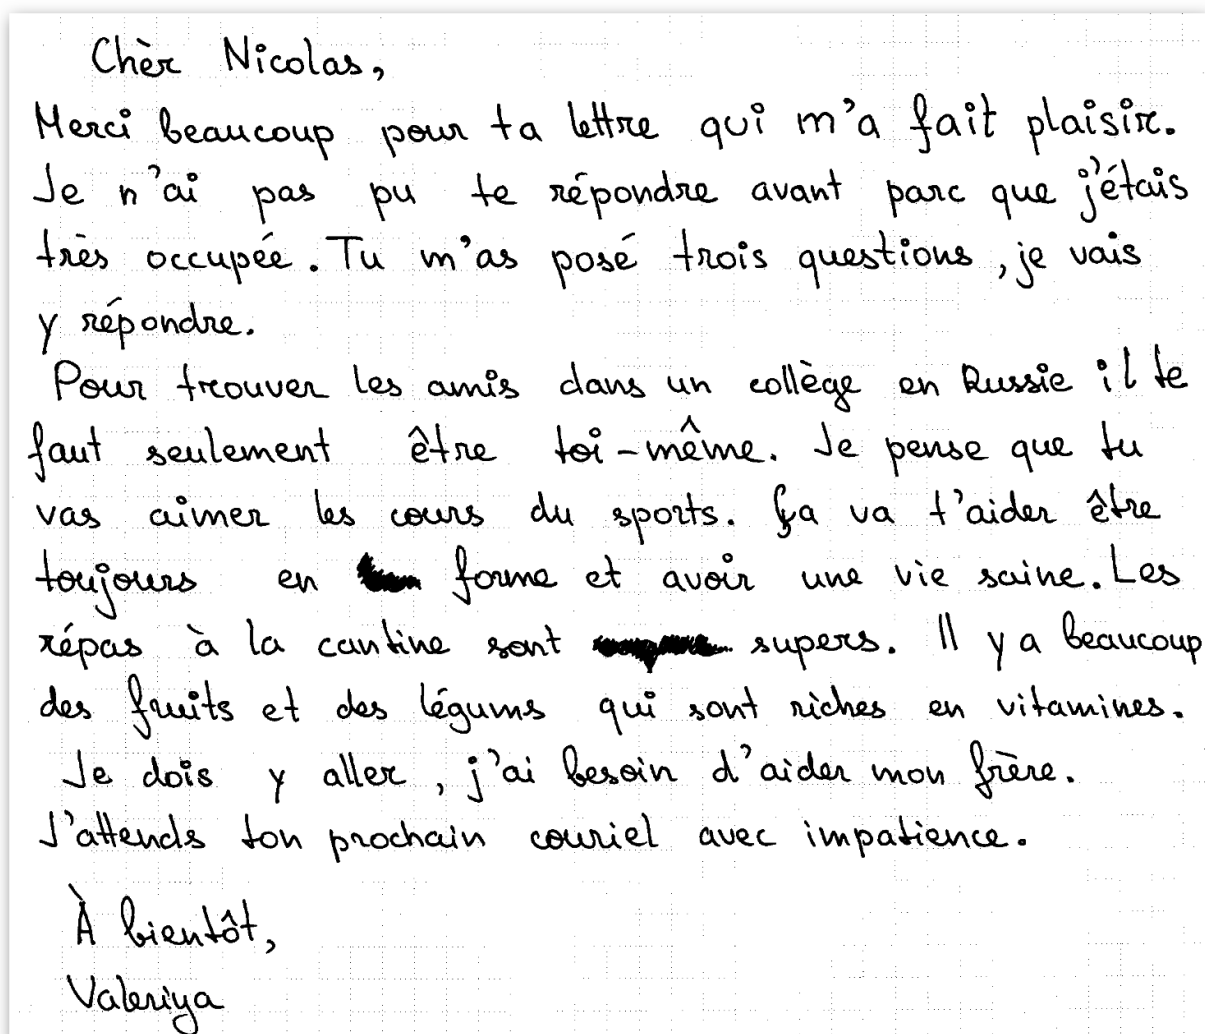 Chèr Nicolas,
Merci beaucoup pour ta lettre qui m'a fait plaisir.
Je n'ai pas pu te répondre avant parc que j'étais
très occupée. Tu m'as posé trois questions, je vais
y répondre.
Pour trouver les amis dans un collège en Russie il te
faut seulement être toi-même. Je pense que tu
vas aimer les cours du sports. Ça va t'aider être
toujours en forme et avoir une vie saine. Les
répas à la cantine sont supers. Il y a beaucoup
des fruits et des légums qui sont riches en vitamines.
Je dois y aller, j'ai besoin d'aider mon frère.
J'attends ton prochain couriel avec impatience.
À bientôt,
Valeriya